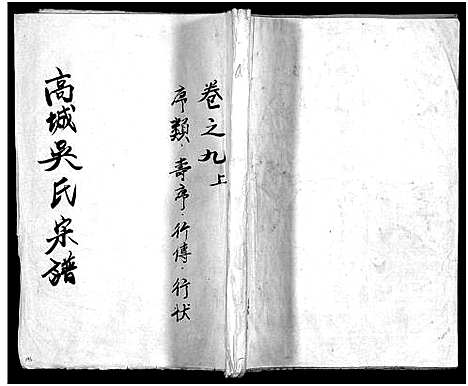 卷之九上
序類·壽序·行傳·行狀
高城吳氏宗譜